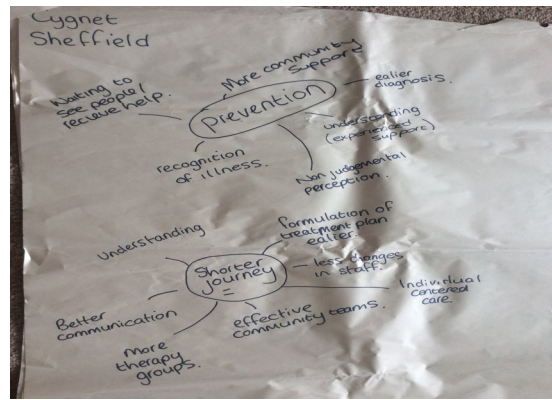 Cygnet
Sheffield
More community
support
Waiting to
see people/
recieve help.
prevention
ealier
diagnosis.
understanding
(experienced support)
recognition
of illness.
Non judgemental
perception.
understanding
formulation of
treatment plan
ealier.
Shorter
journey
=
less changes
in staff.
Individual
centered
care.
Better
communication
effective
community teams.
More
therapy
groups.